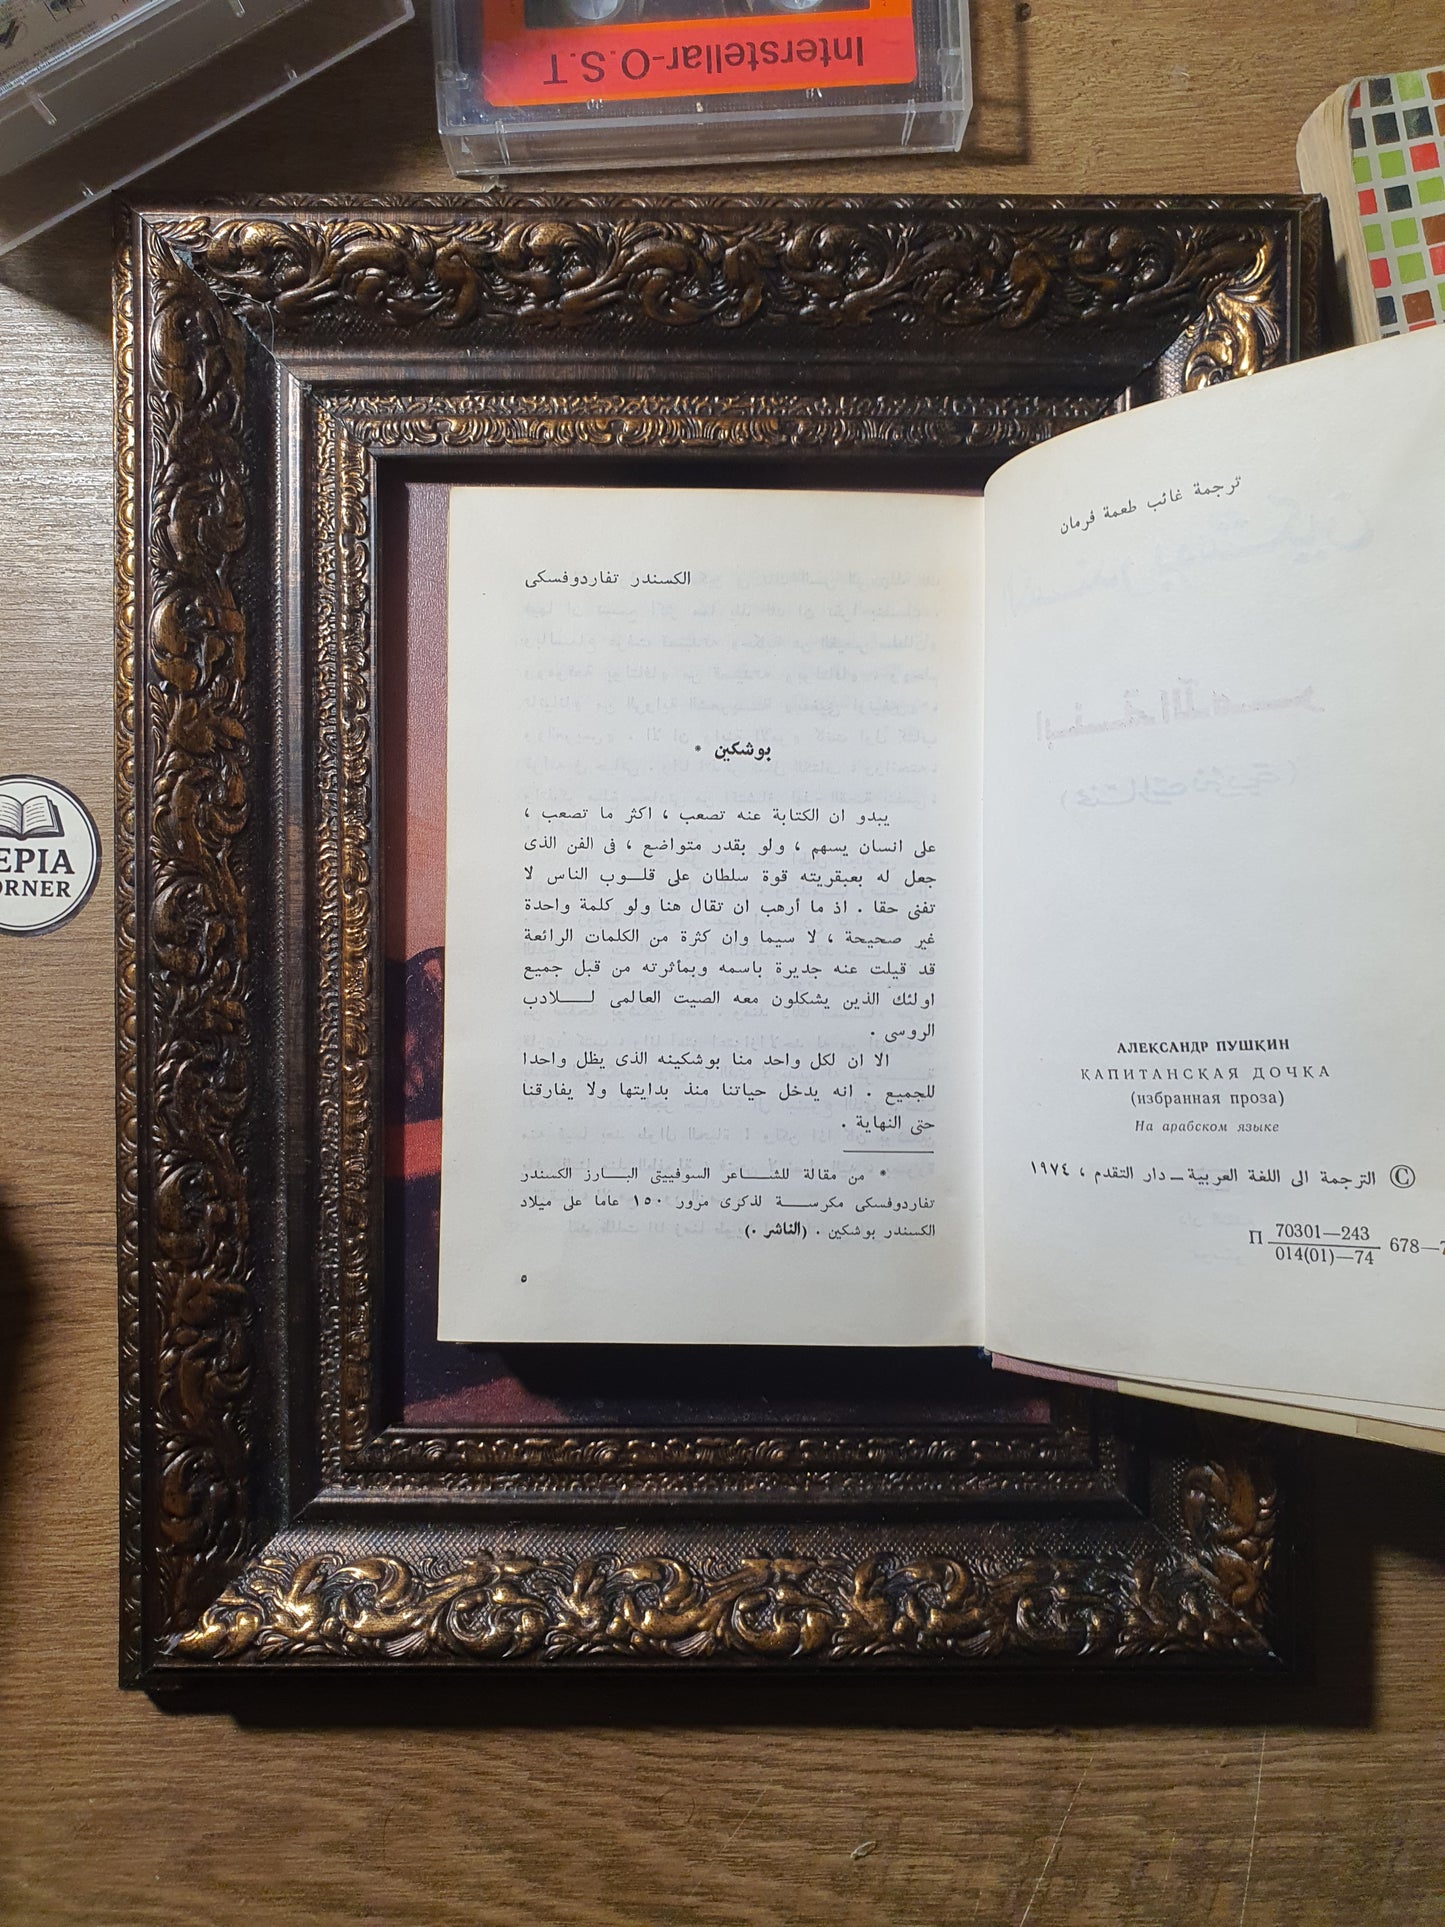 Interstellar-O.S.T
EPIA
ORNER
ترجمة غائب طعمة فرمان
АЛЕКСАНДР ПУШКИН
КАПИТАНСКАЯ ДОЧКА
(избранная проза)
На арабском языке
© الترجمة الى اللغة العربية – دار التقدم ، ١٩٧٤
П 70301—243
014(01)—74
678—7
الكسندر تفاردوفسكى
بوشكين *
يبدو ان الكتابة عنه تصعب ، اكثر ما تصعب ،
على انسان يسهم ، ولو بقدر متواضع ، فى الفن الذى
جعل له بعبقريته قوة سلطان على قلوب الناس لا
تفنى حقا . اذ ما أرهب ان تقال هنا ولو كلمة واحدة
غير صحيحة ، لا سيما وان كثرة من الكلمات الرائعة
قد قيلت عنه جديرة باسمه وبمأثرته من قبل جميع
اولئك الذين يشكلون معه الصيت العالمى للادب
الروسى .
الا ان لكل واحد منا بوشكينه الذى يظل واحدا
للجميع . انه يدخل حياتنا منذ بدايتها ولا يفارقنا
حتى النهاية .
* من مقالة للشاعر السوفييتى البارز الكسندر
تفاردوفسكى مكرسة لذكرى مرور ١٥٠ عاما على ميلاد
الكسندر بوشكين . (الناشر .)
٥